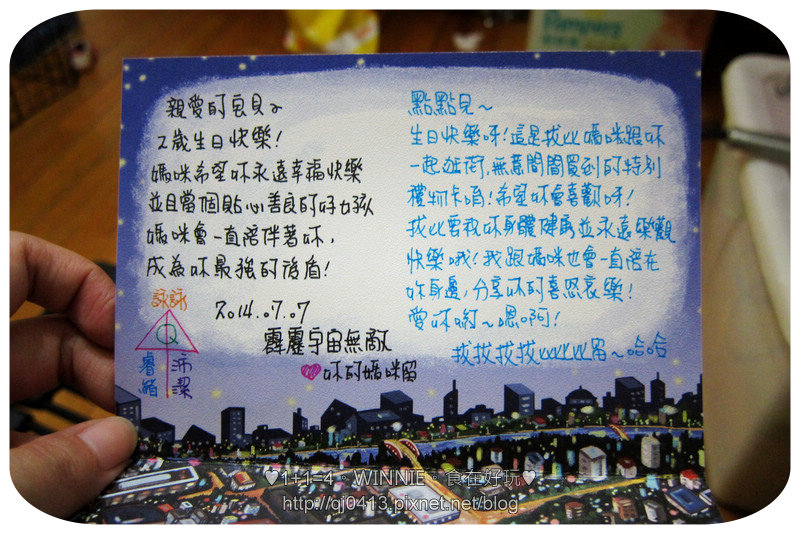 親愛的貝貝~
2歲生日快樂!
媽咪希望妳永遠幸福快樂
並且當個貼心善良的好女孩
媽咪會一直陪伴著妳,
成為妳最強的後盾!
2014.07.07
霹靂宇宙無敵
♥妳的媽咪留
詠詠
睿緒
沛潔
點點兒~
生日快樂呀!這是找比媽咪跟妳
一起逛街,無意間買到的特別
禮物卡唷!希望妳會喜歡呀!
找比要祝妳身體健康並永遠樂觀
快樂哦!我跟媽咪也會一直陪在
妳身邊,分享妳的喜怒哀樂!
愛妳喲~嗯啊!
找找找找比比比比留~哈哈
Pampers
♥1+1=4。WINNIE。食在好玩♥
http://qj0413.pixnet.net/blog